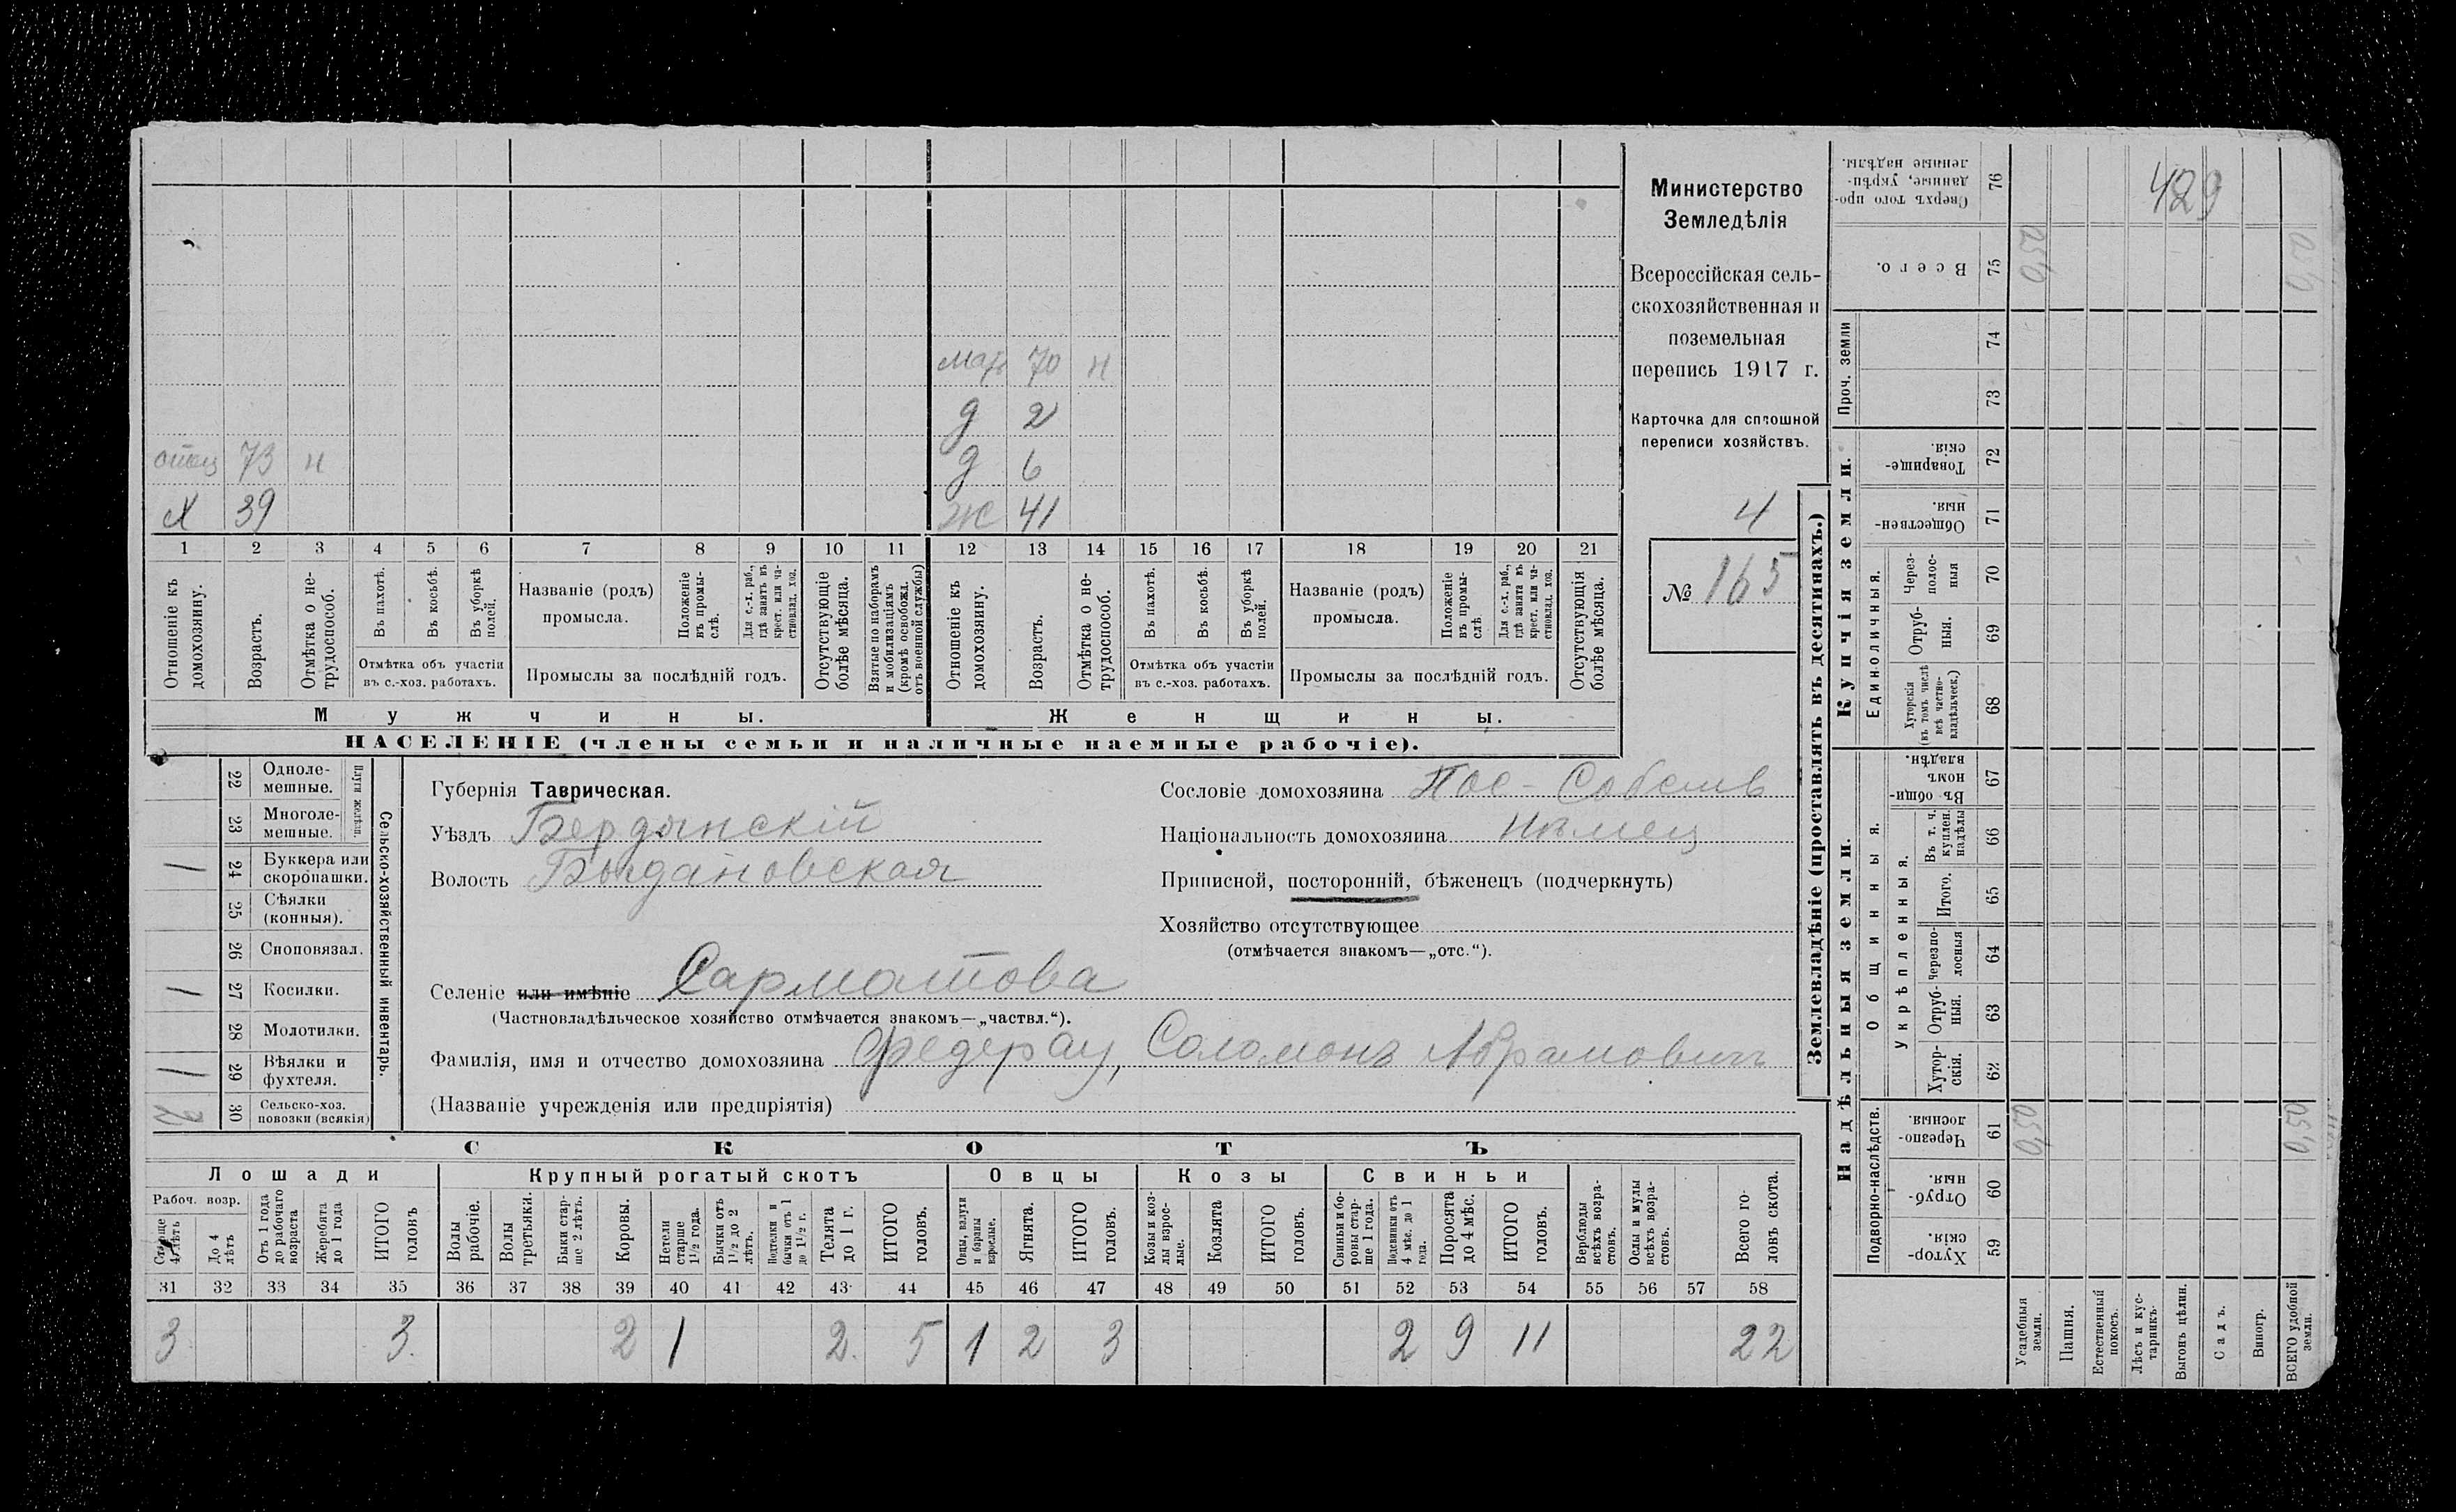 Министерство
Земледѣлія
Всероссійская сель-
скохозяйственная и
поземельная
перепись 1917 г.
Карточка для сплошной
переписи хозяйствъ.
4
№ 165
мать 70 н
д 2
д 6
отец 73 н
Ж 41
Х 39
1 2 3 4 5 6 7 8 9 10 11 12 13 14 15 16 17 18 19 20 21
Отношеніе къ домохозяину.
Возрастъ.
Отмѣтка о не-трудоспособ.
Въ пахотѣ.
Въ косьбѣ.
Въ уборкѣ полей.
Отмѣтка объ участіи
въ с.-хоз. работахъ.
Названіе (родъ)
промысла.
Положеніе въ промы-слѣ.
Для с.-х. раб., гдѣ занятъ въ крест. или ча-стновлад. хоз.
Промыслы за послѣдній годъ.
Отсутствующіе болѣе мѣсяца.
Взятые по наборамъ и мобилизаціямъ (кромѣ освобожд. отъ военной службы)
Отношеніе къ домохозяину.
Возрастъ.
Отмѣтка о не-трудоспособ.
Въ пахотѣ.
Въ косьбѣ.
Въ уборкѣ полей.
Отмѣтка объ участіи
въ с.-хоз. работахъ.
Названіе (родъ)
промысла.
Положеніе въ промы-слѣ.
Для с.-х. раб., гдѣ занята въ крест. или ча-стновлад. хоз.
Промыслы за послѣдній годъ.
Отсутствующія болѣе мѣсяца.
Мужчины.
Женщины.
НАСЕЛЕНІЕ (члены семьи и наличные наемные рабочіе).
Сельско-хозяйственный инвентарь.
Плуги желѣзн.
22 Одноле-мешные.
23 Многоле-мешные.
1 24 Буккера или скоропашки.
25 Сѣялки (конныя).
26 Сноповязал.
1 27 Косилки.
28 Молотилки.
1 29 Вѣялки и фухтеля.
2 30 Сельско-хоз. повозки (всякія)
Губернія Таврическая.
Уѣздъ Бердянскій
Волость Богдановская
Сословіе домохозяина Пос-Собств
Національность домохозяина Нѣмец
Приписной, посторонній, бѣженецъ (подчеркнуть)
Хозяйство отсутствующее
(отмѣчается знакомъ—„отс.“).
Селеніе или имѣніе Сарматова
(Частновладѣльческое хозяйство отмѣчается знакомъ—„частвл.“).
Фамилія, имя и отчество домохозяина Федерау, Соломонъ Абрамович
(Названіе учрежденія или предпріятія)
СКОТЪ
Лошади Крупный рогатый скотъ Овцы Козы Свиньи
Рабоч. возр.
Старше 4 лѣтъ
До 4 лѣтъ
Отъ 1 года до рабочаго возраста
Жеребята до 1 года
ИТОГО головъ
Волы рабочіе.
Волы третьяки.
Быки стар-ше 2 лѣтъ.
Коровы.
Нетели старше 1½ года.
Бычки отъ 1½ до 2 лѣтъ.
бычки отъ 1 до 1½ г.
Телята до 1 г.
ИТОГО головъ.
Овцы, валухи и бараны взрослые.
Ягнята.
ИТОГО головъ.
Козы и коз-лы взрос-лые.
Козлята
ИТОГО головъ.
Свиньи и бо-ровы стар-ше 1 года.
Подсвинки отъ 4 мѣс. до 1 года.
Поросята до 4 мѣс.
ИТОГО головъ.
Верблюды всѣхъ возра-стовъ.
Ослы и мулы всѣхъ возра-стовъ.
Всего го-ловъ скота.
31 32 33 34 35 36 37 38 39 40 41 42 43 44 45 46 47 48 49 50 51 52 53 54 55 56 57 58
3 3. 2 1 2. 5 1 2 3 2 9 11 22
Землевладѣніе (проставлять въ десятинахъ.)
429
Сверхъ того про-данные, укрѣп-ленные надѣлы. 76
Всего. 75 0,50 0,50
Проч. земли
74
73
Купчія земли.
Товарище-скія. 72
Обществен-ныя. 71
Единоличныя.
Через-полос-ныя 70
Отруб-ныя. 69
Хуторскія (въ томъ числѣ всѣ частно-владѣльческ.) 68
Надѣльныя земли.
Общинныя.
Въ общин-номъ владѣн. 67
Укрѣпленныя.
Въ т. ч. куплен. надѣлы 66
Итого. 65
Черезпо-лосныя 64
Отруб-ныя. 63
Хутор-скія. 62
Подворно-наслѣдств.
Черезпо-лосныя 61 0,50 0,50
Отруб-ныя 60
Хутор-скія. 59
Усадебныя земли.
Пашня.
Естественный покосъ.
Лѣсъ и кус-тарникъ.
Выгонъ цѣлин.
Садъ.
Виногр.
ВСЕГО удобной земли.